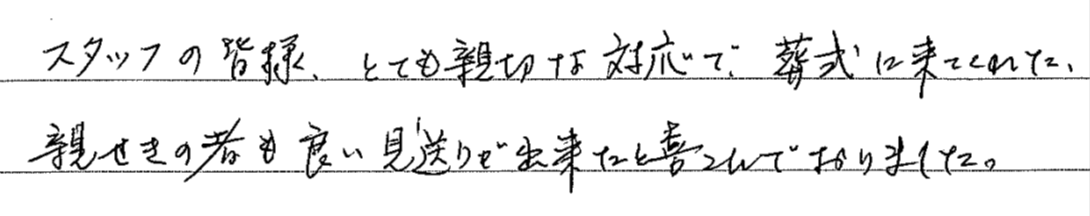 スタッフの皆様、とても親切な対応で、葬式に来てくれた、
親せきの者も良い見送りが出来たと喜こんでおりました。